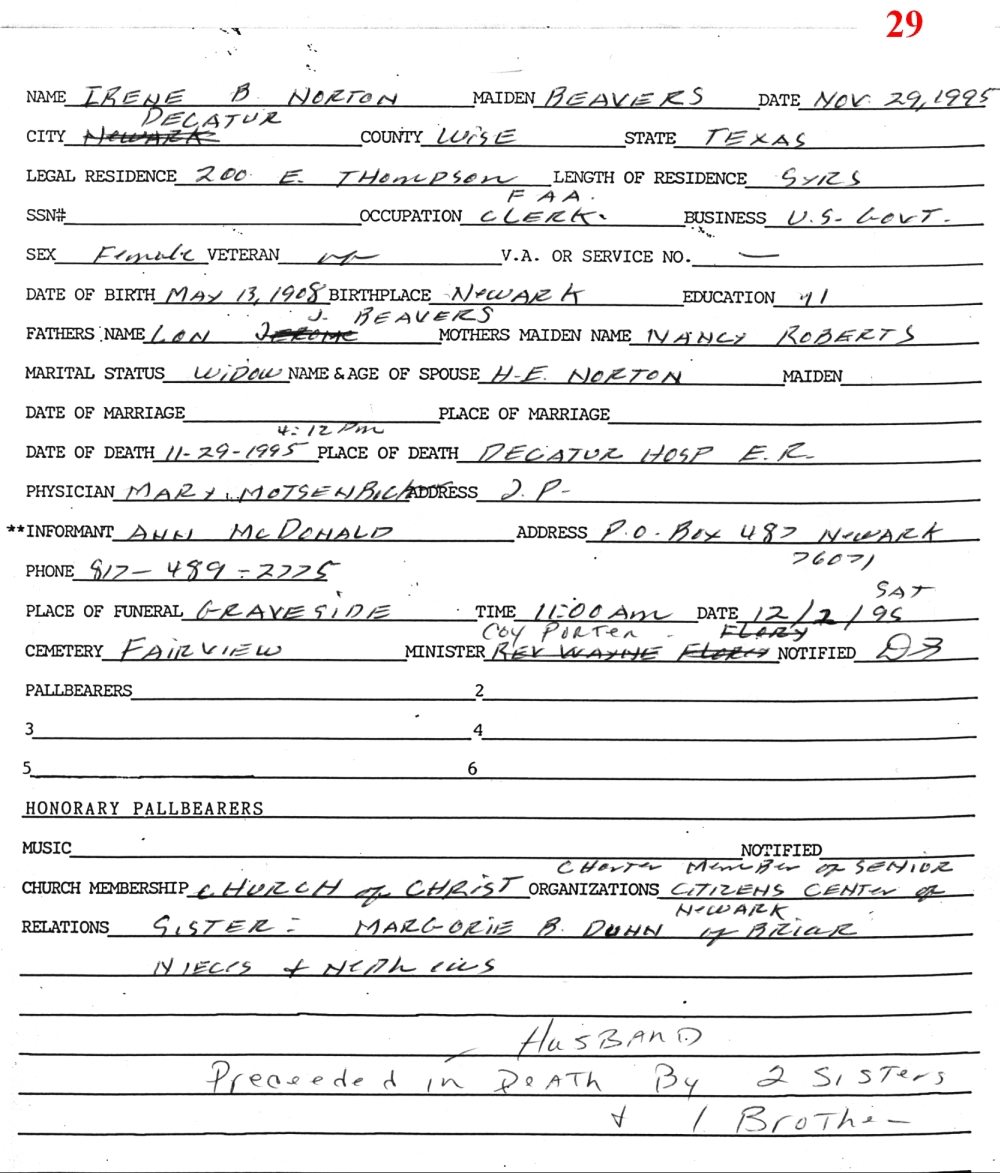 29
NAME IRENE B. NORTON MAIDEN BEAVERS DATE NOV. 29, 1995
DECATUR
CITY NEWARK COUNTY WISE STATE TEXAS
LEGAL RESIDENCE 200 E. THOMPSON LENGTH OF RESIDENCE 5YRS
F A A.
SSN# OCCUPATION CLERK. BUSINESS U.S. GOVT.
SEX Female VETERAN V.A. OR SERVICE NO. —
DATE OF BIRTH MAY 13, 1908 BIRTHPLACE NEWARK EDUCATION 11
J. BEAVERS
FATHERS NAME LON JEROME MOTHERS MAIDEN NAME NANCY ROBERTS
MARITAL STATUS WIDOW NAME & AGE OF SPOUSE H.E. NORTON MAIDEN
DATE OF MARRIAGE PLACE OF MARRIAGE
4:12 Pm
DATE OF DEATH 11-29-1995 PLACE OF DEATH DECATUR HOSP E.R.
PHYSICIAN MARY ADDRESS J. P-
**INFORMANT ANN McDONALD ADDRESS P.O. Box 487 NEWARK
76071
PHONE 817-489-2225
SAT
PLACE OF FUNERAL GRAVESIDE TIME 11:00 Am DATE 12/2/95
COY PORTER - FLORY
CEMETERY FAIRVIEW MINISTER REV WAYNE NOTIFIED
PALLBEARERS 2
3 4
5 6
HONORARY PALLBEARERS
MUSIC NOTIFIED
CHARTER MEMBER OF SENIOR
CHURCH MEMBERSHIP CHURCH of CHRIST ORGANIZATIONS CITIZENS CENTER of
NEWARK
RELATIONS SISTER: MARGORIE B. DUNN of BRIAR
NIECES & NEPHEWS
HUSBAND
Preceeded in DEATH By 2 SISTERS
& 1 BROTHER